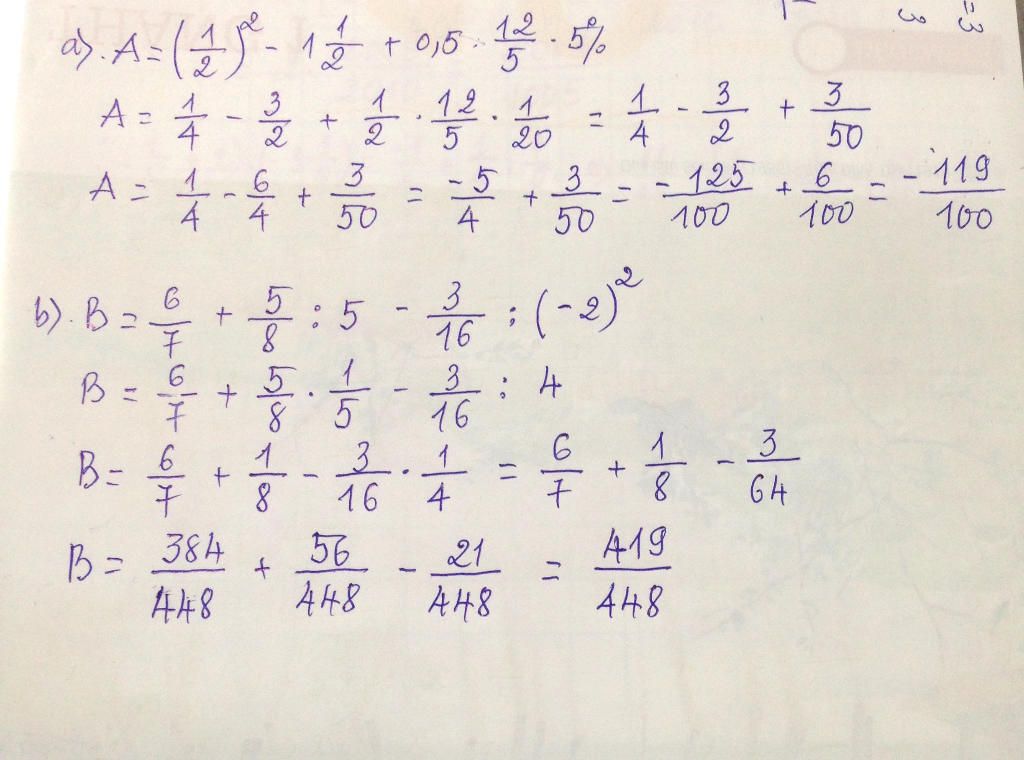 a). A = (1/2)² - 1 1/2 + 0,5 · 12/5 · 5%
A = 1/4 - 3/2 + 1/2 · 12/5 · 1/20 = 1/4 - 3/2 + 3/50
A = 1/4 - 6/4 + 3/50 = -5/4 + 3/50 = -125/100 + 6/100 = -119/100
b). B = 6/7 + 5/8 : 5 - 3/16 : (-2)²
B = 6/7 + 5/8 · 1/5 - 3/16 : 4
B = 6/7 + 1/8 - 3/16 · 1/4 = 6/7 + 1/8 - 3/64
B = 384/448 + 56/448 - 21/448 = 419/448